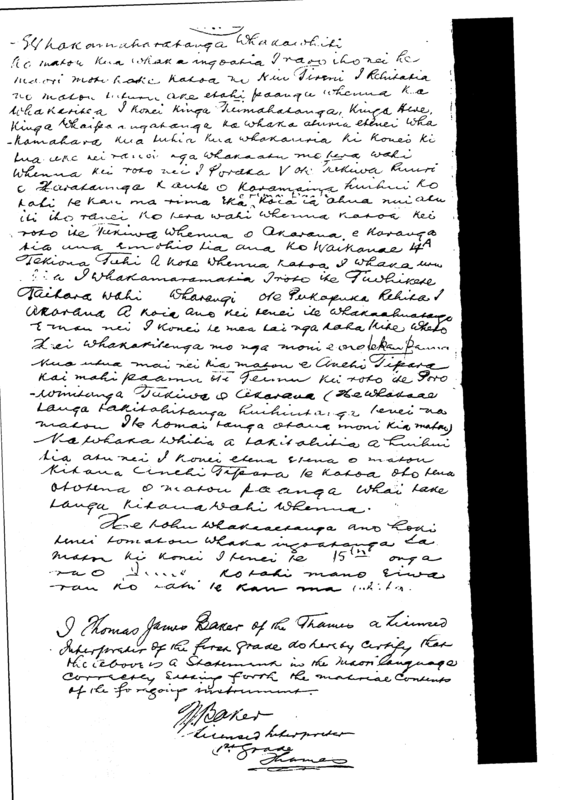 - Whakamaharatanga Whakawhiti
Ko matou kua whaka ingoatia I raro iho nei he
maori motu hake katoa no Niu Tireni I Rehitatia
no matou tuturu ake etahi paanga whenua ka
whakaritea I konei Kinga
Kinga ka whaka aturia etenei Wha
-kamahara kua tuhia kua whakauria ki konei ki
tua ake nei ranei nga whakaatu mo tera wahi
whenua kei roto nei I Poraka V oti Takiwa Ruuri
o Karamaina huihui ko
tahi te kau ma rima eka koia ia ahua nui atu
iti iho ranei ko tera wahi whenua katoa kei
roto ite Takiwa whenua o Akarana e karanga
tia ana Emohio tia ana ko Waikanae 4A
Tekiona Tuhi A kote whenua katoa I whaka uru
tia I whakamaramatia I roto ite Tiwhikete
Taitara wahi wharangi ote Pukapuka Rehita I
Akarana A koia ano kei tenei ite whakaahuatanga
E mau nei I konei te mea tai nga taha kite whero
Hei whakaritenga mo nga moni e ono te kau pauna
Kua utua mai nei kia matou e Anehi Tipara
kai mahi paamu ite Temu kei roto ite Poro
-wini tanga Takiwa o Akarana (He whakaae
tanga takitahitanga huihuitanga tenei na
matou I te homai tanga otaua moni kia matou)
Ka whaka whitia a takitahitia a huihui
tia atu nei I konei etena etena o matou
kitaua Anehi Tipara te katoa oto tena
ototena o matou paanga whai take
tanga kitaua wahi whenua.
He tohu whakaaetanga ano hoki
tenei tomatou whaka ingoatanga ia
matou ki konei I tenei te 15 onga
ra o ko tahi mano Eiwa
rau ko tahi te kau ma
I Thomas James Baker of the Thames a Licensed
Interpreter of the first grade do hereby certify that
the above is a Statement in the Maori language
correctly setting forth the material contents
of the foregoing instrument.
TJ Baker
Licensed Interpreter
1st Grade
Thames